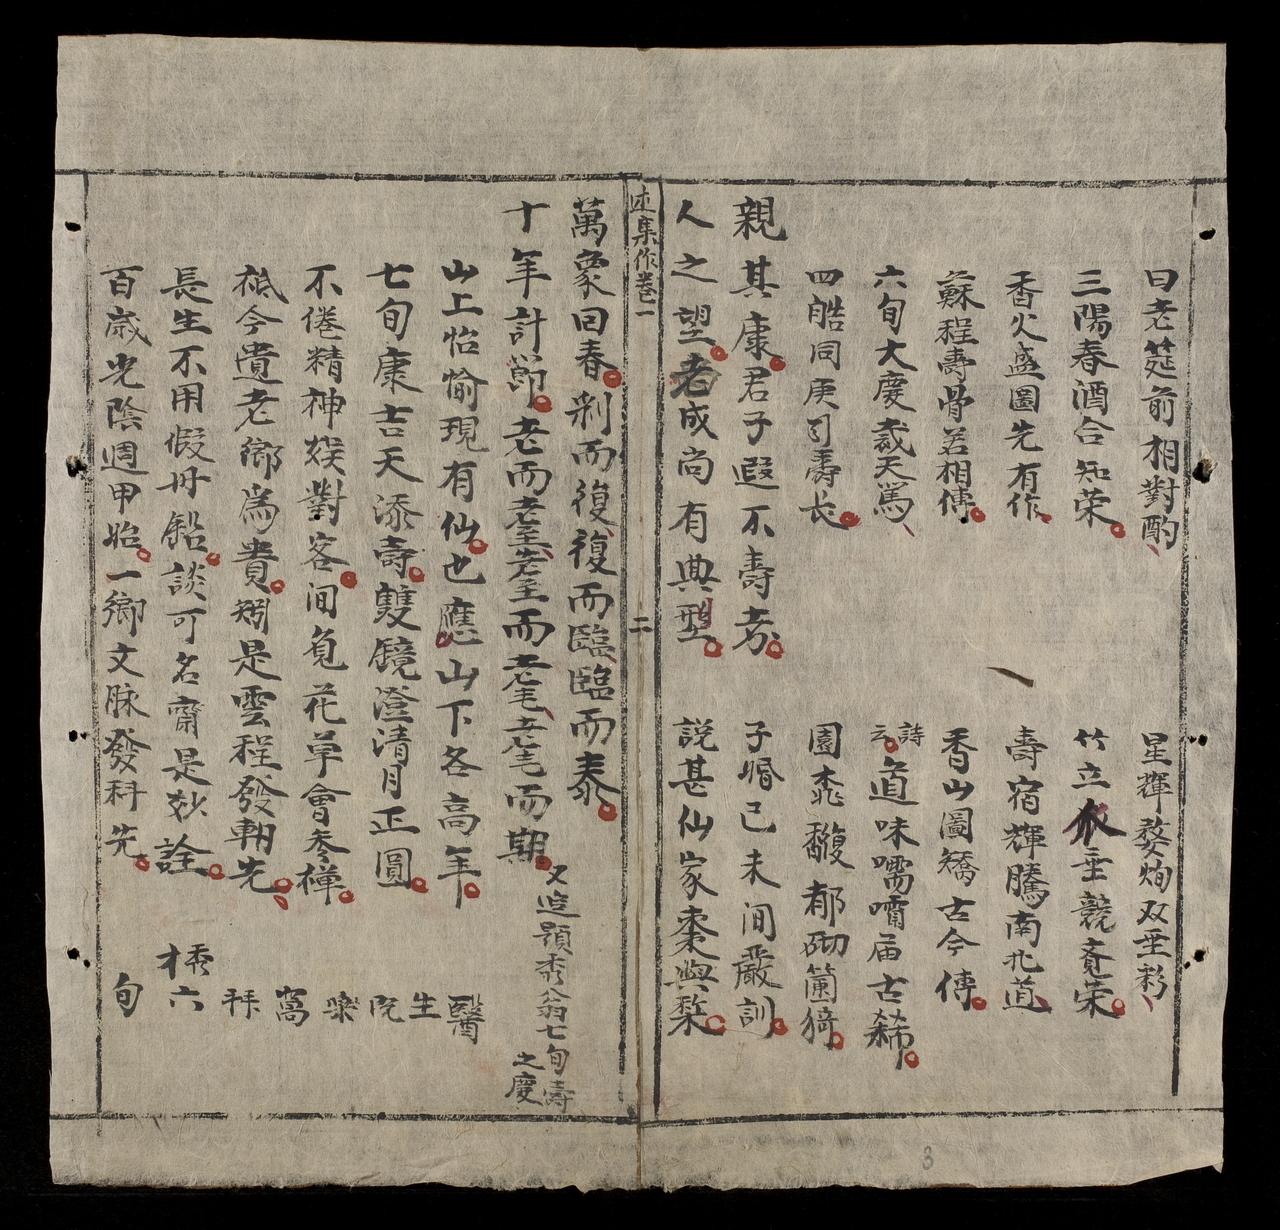 曰老筵前相對酌 星輝婺煥双垂彩
三陽春酒合知荣 竹立衣垂競竟荣
香火盛圖先有作 壽宿輝騰南北道
蘇程壽骨若相傳 香山圖矯古今傳
六旬大慶裁天篤 詩云道味嚅嚅届古稀
四皓同庚引壽長 園桃馥郁砌箘猗
親其康君子遐不壽考 子婚已未间嚴訓
人之望老成尚有典型 説甚仙家棗與棃
述集作卷一 二
萬象回春剥而復復而臨臨而泰
十年計節老而耋耋而耄耄而期 又追題秀翁七旬壽之慶
山上怡愉現有仙也應山下各高年
七旬康吉天添壽雙鏡澄清月正圓
不倦精神娱對客间覔花草會参禅
祗今遺老鄉為貴矧是雲程發軔先
長生不用假丹鉛談可名齋是妙詮
百歲光陰週甲貽一鄉文脉發科先
醫生阮樂窩拜
六
旬